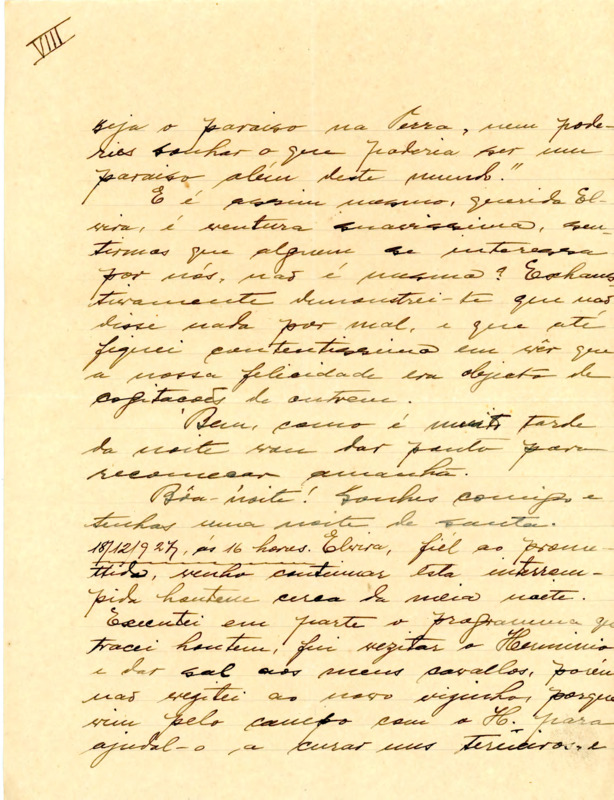 VIII
seja o paraiso na Terra, nem pode-
ries sonhar o que poderia ser um
paraiso além deste mundo."
E é assim mesmo, querida El-
vira, é ventura suavissima, sen-
tirmos que alguem se interessa
por nós, não é mesmo? Exhaus
tivamente demonstrei-te que não
disse nada por mal, e que até
fiquei contentissimo em vêr que
a nossa felicidade era objecto de
cogitações de outrem.
Bem, como é muito tarde
da noite vou dar ponto para
recomeçar amanhã.
Bôa-noite! Sonhes comigo e
tenhas uma noite de santa.
18/12/927, ás 16 horas. Elvira, fiel ao prome-
ttido, venho continuar esta interrom-
pida hontem cerca da meia noite.
Executei em parte o programma q
tracei hontem, fui vezitar o Herminio
e dar sal aos meus cavallos, porém
não vezitei ao novo vizinho, porque
vim pelo campo com o H. para
ajudal-o a curar uns terneiros, e